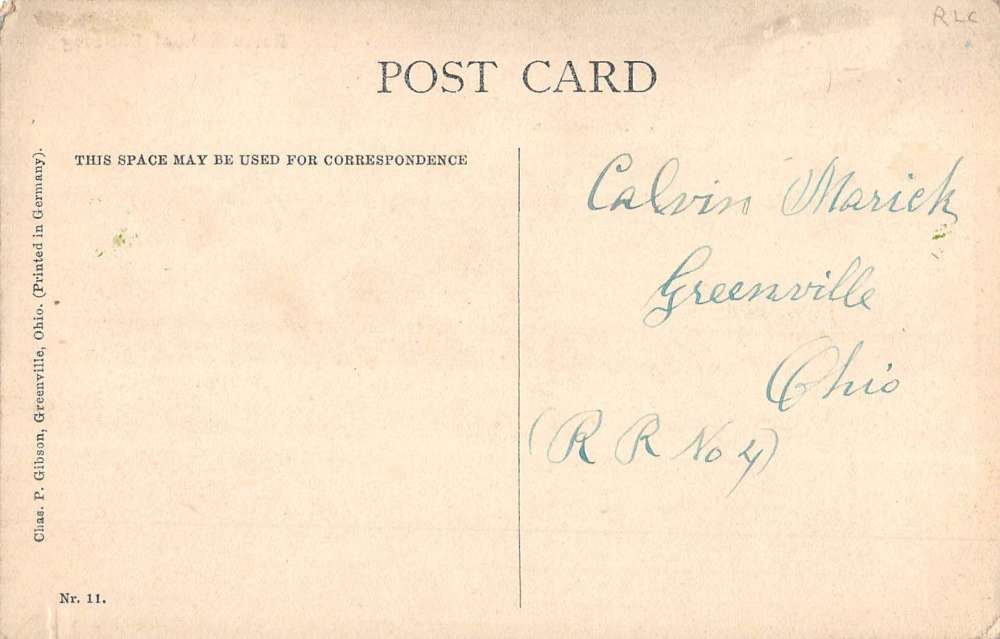 RLC
POST CARD
THIS SPACE MAY BE USED FOR CORRESPONDENCE
Chas. P. Gibson, Greenville, Ohio. (Printed in Germany).
Calvin Marick
Greenville
Ohio
(R R No 4)
Nr. 11.